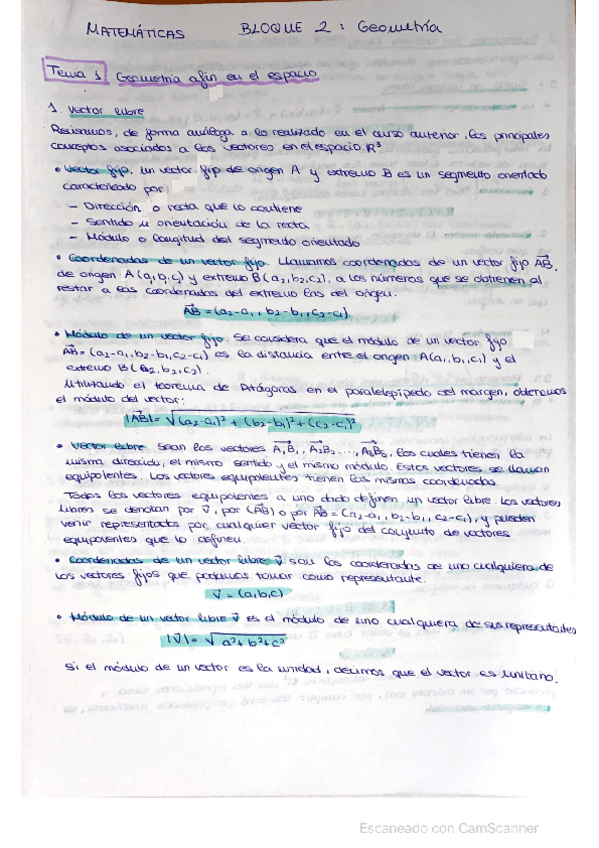 MATEMÁTICAS BLOQUE 2: Geometría
Tema 1 Geometría afín en el espacio
1. Vector libre
Resumimos, de forma análoga a lo realizado en el curso anterior, los principales
conceptos asociados a los vectores en el espacio R³
• Vector fijo. Un vector fijo de origen A y extremo B es un segmento orientado
caracterizado por:
- Dirección o recta que lo contiene
- Sentido u orientación de la recta
- Módulo o longitud del segmento orientado
• Coordenadas de un vector fijo. Llamamos coordenadas de un vector fijo AB,
de origen A(a₁,b₁,c₁) y extremo B(a₂,b₂,c₂), a los números que se obtienen al
restar a las coordenadas del extremo las del origen.
AB = (a₂-a₁, b₂-b₁, c₂-c₁)
• Módulo de un vector fijo. Se considera que el módulo de un vector fijo
AB = (a₂-a₁, b₂-b₁, c₂-c₁) es la distancia entre el origen A(a₁,b₁,c₁) y el
extremo B(a₂,b₂,c₂).
Utilizando el teorema de Pitágoras en el paralelepípedo del margen, obtenemos
el módulo del vector:
|AB| = √(a₂-a₁)² + (b₂-b₁)² + (c₂-c₁)²
• Vector libre. Sean los vectores A₁B₁, A₂B₂ ..., los cuales tienen la
misma dirección, el mismo sentido y el mismo módulo. Estos vectores se llaman
equipolentes. Los vectores equipolentes tienen las mismas coordenadas.
Todos los vectores equipolentes a uno dado definen un vector libre. Los vectores
libres se denotan por v, por (AB) o por AB = (a₂-a₁, b₂-b₁, c₂-c₁), y pueden
venir representados por cualquier vector fijo del conjunto de vectores
equipolentes que lo definen.
• Coordenadas de un vector libre v son las coordenadas de uno cualquiera de
los vectores fijos que podemos tomar como representante.
v = (a,b,c)
• Módulo de un vector libre v es el módulo de uno cualquiera de sus representantes
|v| = √a²+b²+c²
Si el módulo de un vector es la unidad, decimos que el vector es unitario.
Escaneado con CamScanner